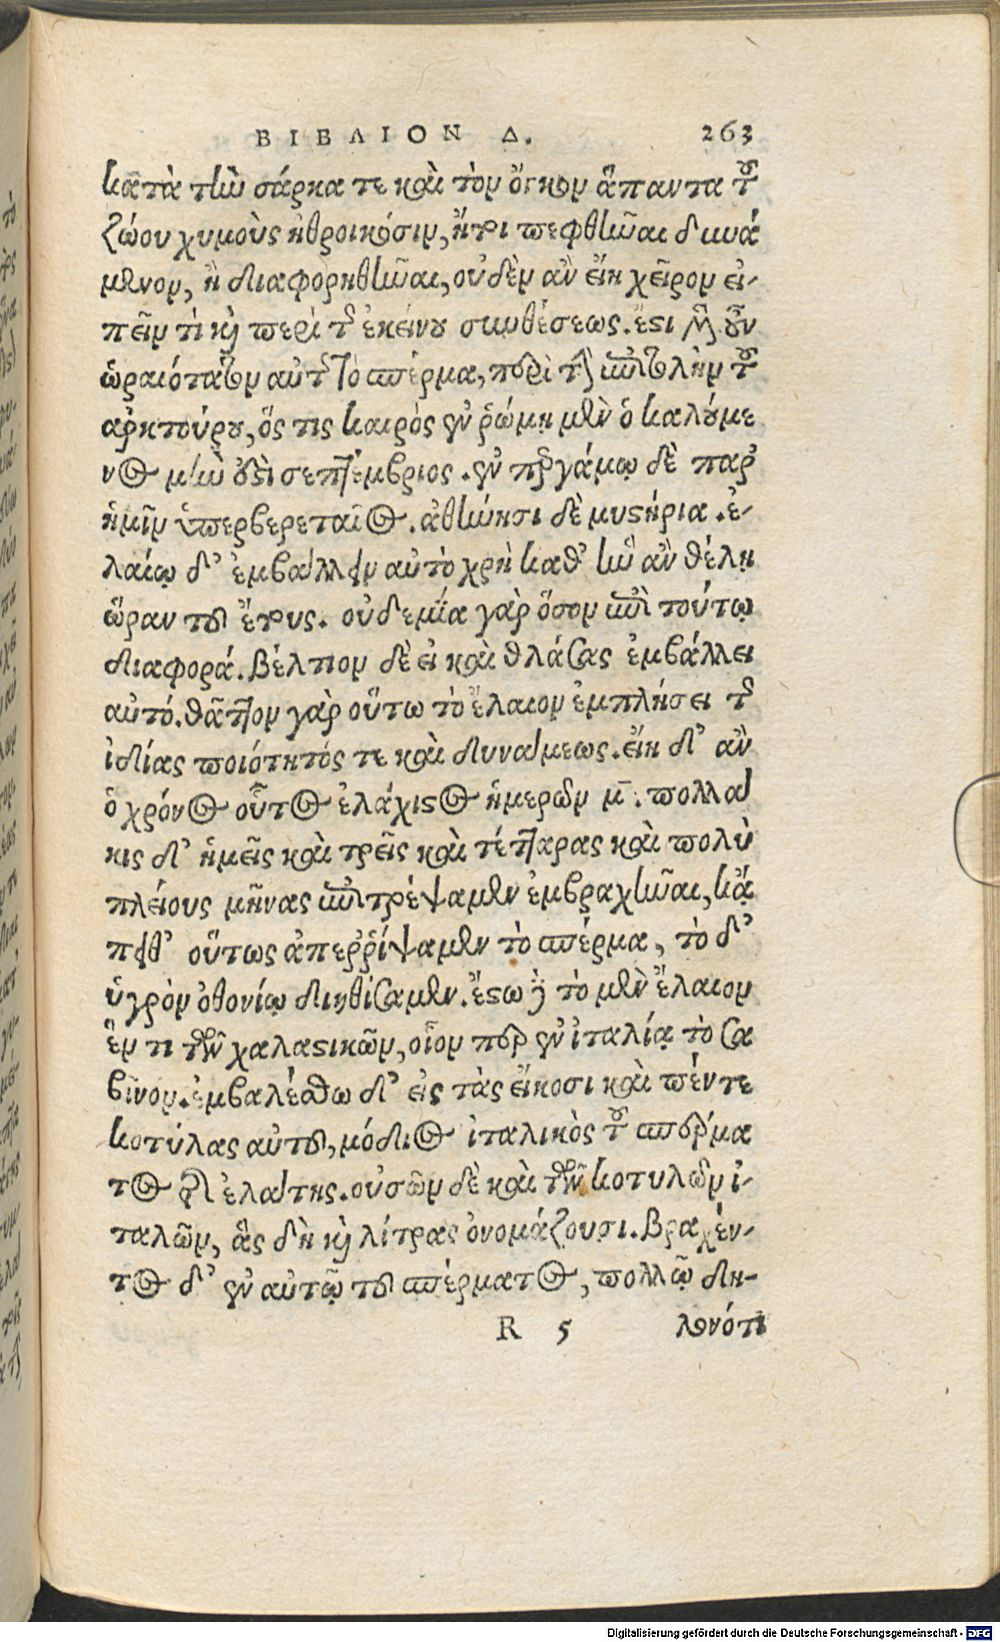 ΒΙΒΛΙΟΝ Δ. 263
κατὰ τὴν σάρκα τε καὶ τὸν ὄγκον ἅπαντα τοῦ
ζώου χυμοὺς ἠθροικόσιν, ἤτοι πεφθῆναι δυνά
μενον, ἢ διαφορηθῆναι, οὐδὲν ἂν εἴη χεῖρον εἰ-
πεῖν τὶ καὶ περὶ τῆς ἐκείνου συνθέσεως. ἔστι μὲν οὖν
ὡραιότατον αὐτῆς τὸ σπέρμα, περὶ τὴν ἐπιτολὴν τοῦ
ἀρκτούρου, ὅς τις καιρὸς ἐν ῥώμῃ μὲν ὁ καλούμε
νος μὴν ἐστὶ σεπτέμβριος. ἐν περγάμῳ δὲ παρ'
ἡμῖν ὑπερβερεταῖος. ἀθήνησι δὲ μυστήρια. ἐ-
λαίῳ δ' ἐμβάλλειν αὐτὸ χρὴ καθ' ἣν ἂν θέλῃ
ὥραν τοῦ ἔτους. οὐδεμία γὰρ ὅσον ἐπὶ τούτῳ
διαφορά. βέλτιον δὲ εἰ καὶ θλάσας ἐμβάλλει
αὐτό. θᾶττον γὰρ οὕτω τὸ ἔλαιον ἐμπλήσει τῆς
ἰδίας ποιότητός τε καὶ δυνάμεως. εἴη δ' ἂν
ὁ χρόνος οὗτος ἐλάχιστος ἡμερῶν μ̅. πολλά
κις δ' ἡμεῖς καὶ τρεῖς καὶ τέτταρας καὶ πολὺ
πλείους μῆνας ἐπιτρέψαμεν ἐμβραχῆναι, κᾄ
πειθ' οὕτως ἀπερρίψαμεν τὸ σπέρμα, τὸ δ'
ὑγρὸν ὀθονίῳ διηθήσαμεν. ἔστω δὲ τὸ μὲν ἔλαιον
ἕν τι τῶν χαλαστικῶν, οἷον περ ἐν ἰταλίᾳ τὸ σα
βῖνον. ἐμβαλέσθω δ' εἰς τὰς εἴκοσι καὶ πέντε
κοτύλας αὐτοῦ, μόδιος ἰταλικὸς τοῦ σπέρμα
τος τῆς ἐλάτης. οὐσῶν δὲ καὶ τῶν κοτυλῶν ἰ-
ταλῶν, ἃς δὴ καὶ λίτρας ὀνομάζουσι. βραχέν-
τος δ' ἐν αὐτῷ τοῦ σπέρματος, πολλῷ δη-
R 5 λονότι
Digitalisierung gefördert durch die Deutsche Forschungsgemeinschaft - DFG